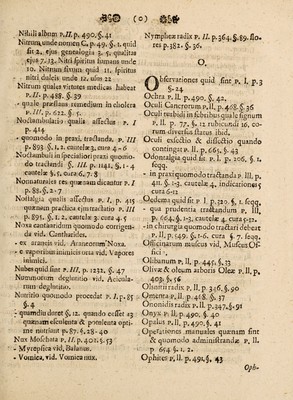 (o)
Nihili album P. II. p. 490. §. 41
Nitrum unde nomen C. p. 49. §. 1. quid
sit 2. ejus genealogia 3. 5. qualitas
ejus 7. 13. Nitri spiritus fumans unde
10. Nitrum fixum quid 11. spiritus
nitri dulcis unde 12. usus 22
Nitrum quales virtutes medicas habeat
P. II. p. 488. §. 39
- quale præstans remedium in cholera
P. III. p. 622. §. 5.
Noctambulatio qualis affectus P. I
p. 414
- quomodo in praxi, tractanda. P. III
p. 893. §. 1. 2. cautelæ 3. curæ 4-6
Noctambuli in speciali praxi quomodo
tractandi §. III. p. 1141. §. 1-4
cautelæ 5. curæ 6. 7. 8
Nonnaturales res quænam dicantur P. I
p. 85. §. 2-7
Nostalgia qualis affectus P. I, p. 415
quænam practica ejus tractatio P. III
p. 891. §. 1. 2. cautelæ 3. curæ 4. 5
Noxa cantharidum quomodo corrigen-
da vid. Cantharides.
- ex araneis vid. Araneorum Noxa.
- e vaporibus inimicis orta vid. Vapores
inimici.
Nubes quid sint P. III. p. 1232. §. 47
Nummorum deglutitio vid. Acicula-
rum deglutitio.
Nutritio quomodo procedat P. I. p. 85
§. 4
- quamdiu duret §. 12. quando cesset 43
quænam esculenta & potulenta opti-
me nutriant p. 87. §. 28-40
Nux Moschata P. II. p. 402. §. 53
- Myrepsica vid. Balanus.
- Vomica, vid. Vomica nux.
Nymphææ radix P. II. p. 364. §. 89. flo-
res p. 382. §. 36.
O.
Observationes quid sint P. I. p. 3
§. 24
Ochra P. II. p. 490. §. 42.
Oculi Cancrorum P. II. p. 468. §. 36
Oculi reabuli in febribus quale signum
P. II. p. 77. §. 12 rubicundi 10. eo-
rum diversus status ibid.
Oculi exsectio & dissectio quando
contingat P. II. p. 661. §. 43
Odontalgia quid sit P. I. p. 206, §. 1.
seqq.
- in praxi quomodo tractanda P. III. p.
411. §. 1-3. cautelæ 4. indicationes 5
curæ 6-12
Oedema quid sit P. I. p. 320. §. 1. seqq.
- qua prudentia tractandum P. III,
p. 664. §. 1-3. cautelæ 4. curæ 5-12
- in chirurgia quomodo tractari debeat
P. II. p. 549. §. 1-6. cura §. 7. seqq.
Officinarum muscus vid. Muscus Of-
fici.
Olibanum P. II, p. 445. §. 53
Olivæ & oleum arboris Oleæ P. II. p.
403. §. 56
Olsnitii radix P. II. p. 346. §. 90
Omenta P. II. p. 488. §. 37
Ononidis radix P. II. p. 347. §. 91
Onyx P. II. p. 490. §. 40
Opalus P. II. p. 490. §. 41
Operationes manuales quænam sint
& quomodo administrandæ P. II.
p. 654 §. 1. 2.
Ophites P. II. p. 491. §. 43
Oph-